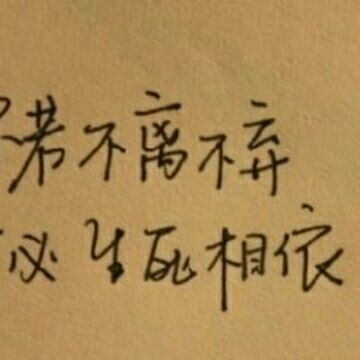 若不离不弃
必生死相依